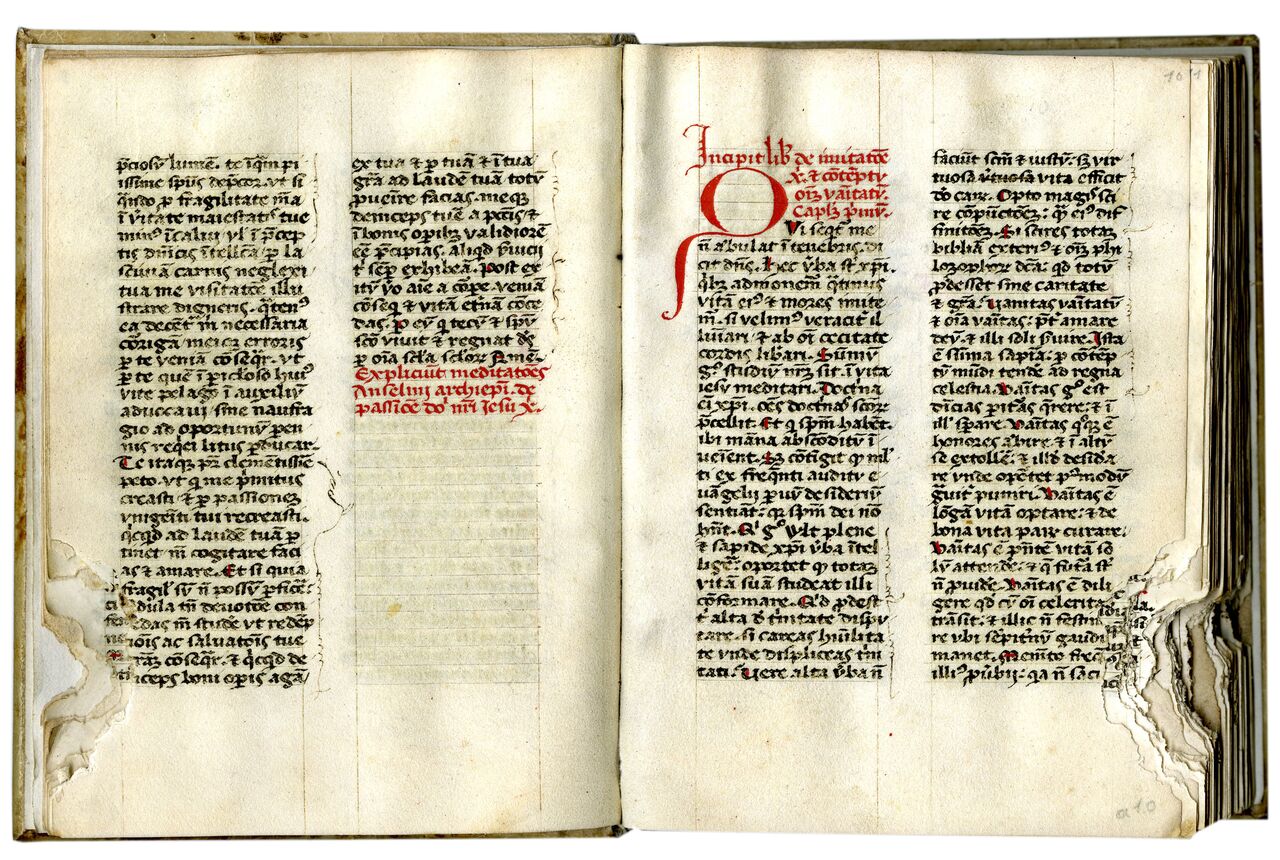 p̄ciosỹ lumē. te īq̄m pi
issime spūs dep̄cor. vt si
q̄ndo ꝑ fragilitatē mā
ī v̄itate maiestatꝭ tue
minꝰ ītellica ꝑ la
sciuiā carnis neglexi
tua me visitatōe illu
strare digneris. q̄tenꝰ
ea decēt̃ m̄ necessaria
corrigā meiꝗ erroris
ꝑ te veniā cōseq̄r. vt
ꝑ te quē ī ꝑiclōso huiꝰ
vite pelago ī auxiliū
aduocaui sine naufra
gio ad oportunū ꝑen
nis reqͥei litus ꝑducar.
Te itaqꝫ pr̄ clementissīe
peto. vt qͥ me p̄mitus
creasti & ꝑ passionez
vnigēiti tui recreasti.
qͥcqͥd ad laudē tuā ꝑ
tinet m̄ cogitare faci
as & amare. Et si quia
fragilꝭ sū n̄ possū ꝑficē:
dula tn̄ deuotōe con
das m̄ stude vt redēp
ōis ac saluatōis tue
grāz cōseqr̄. & qͥcqͥd de
īceps boni oꝑis agā
ex tua & ꝑ tuā & ī tua
grā ad laudē tuā totū
ꝑueire facias. meqꝫ
deinceps tuē a pcc̄is &
ī bonis oꝑibꝫ validiorē
eē p̄cipias. aliqͥd ꝟuicii
t̄ sēꝑ exhibeā. Post ex
itū ꝟo aīe a corꝑe. veniā
cōseqͣ & vitā et̄nā cōce
das. ꝑ eū qͥ tecū & spū
scō viuit & regnat dꝰ
ꝑ oīa scl̄a scl̄oꝝ Amē.
Expliciūt meditatōes
Anselmi archiepī. de
passiōe dōi nr̄i Iesu xͥ.
10 1
Incipit lib̓ de imitatōe
xͥ. & cōtēptu
oīƺ vāitatū.
Caplꝫ p̓mū.
Qvi seqͥt̃ me
n̄ ābulat ī tenebrꝭ. di
cit dn̄s. Hec ꝟba st̄ xp̄i.
qͥbꝫ admonem̃ q̄tinus
vitā eiꝰ & mores imite
m̃. si velimꝰ veracit̃ il
luīari & ab oī cecitate
cordis lib̓ari. Sūmū
gͦ studiū nr̄z sit. ī vita
iesu meditari. Doctna
ci xp̄i. oēs doctnas scōꝝ
p̄cellit. Et qͥ spm̄ habēt.
ibi māna abscōditū ī
ueient. Sꝫ cōtigit qͥ ml̄
ti ex freq̄nti auditu e
uāgelii ꝑuū desideriū
sentiāt: qͥꝛ spm̄ dei nō
hn̄t. Qͥ gͦ vult plene
& sapide xp̄i ꝟba ītel
ligē. oportet qͥ totaz
vitā suā studeat illi
cōformare. Qͥd ꝓdest
t̄ alta d̄ tͥnitate dispu
tare. si careas hūilita
te vnde displiceas tͥni
tati. Vere alta ꝟba n̄
faciūt scm̄ & iustū. sꝫ vir
tuosa vita efficit
dō carū. Opto magꝭ sci
re cōpūctōeꝫ: qͣ eiꝰ dif
finitōeꝫ. Si scires totaz
bibliā exteriꝰ & oīƺ phi
lozophoꝝ dc̄a: qͥd totū
ꝓdesset sine caritate
& grā. Vanitas vāitatū
& oīa vāitas: pt̄ amare
deū. & illi soli ẜuire. Ista
ē sūma sapīa. ꝑ cōtēp
tū mūdi tende ad regna
celestia. Vāitas gͦ est
diuicias ꝑitas qͣrere: & ī
ill̕ sꝑare. Vāitas qͥꝫ ē
honores ābire. & ī altū
se extollē. & illd̕ desid̓a
re vnde oꝑtet pꝰmodū
gͣuit̃ puniri. Vāitas ē
lōgā vitā optare: & de
bona vita paꝝ curare.
Vāitas ē p̄nte vitā so
lū attende. & qͥ futͣa st̄
n̄ ꝓuide. Vāitas ē dili
gere qd̕ cū oī celerita
trāsit: & illuc n̄ festin
re vbi sēꝑitnū gaudiū
manet. Memēto freqͣ
illiꝰ ꝓub̓ii: qͥa n̄ saci
a10